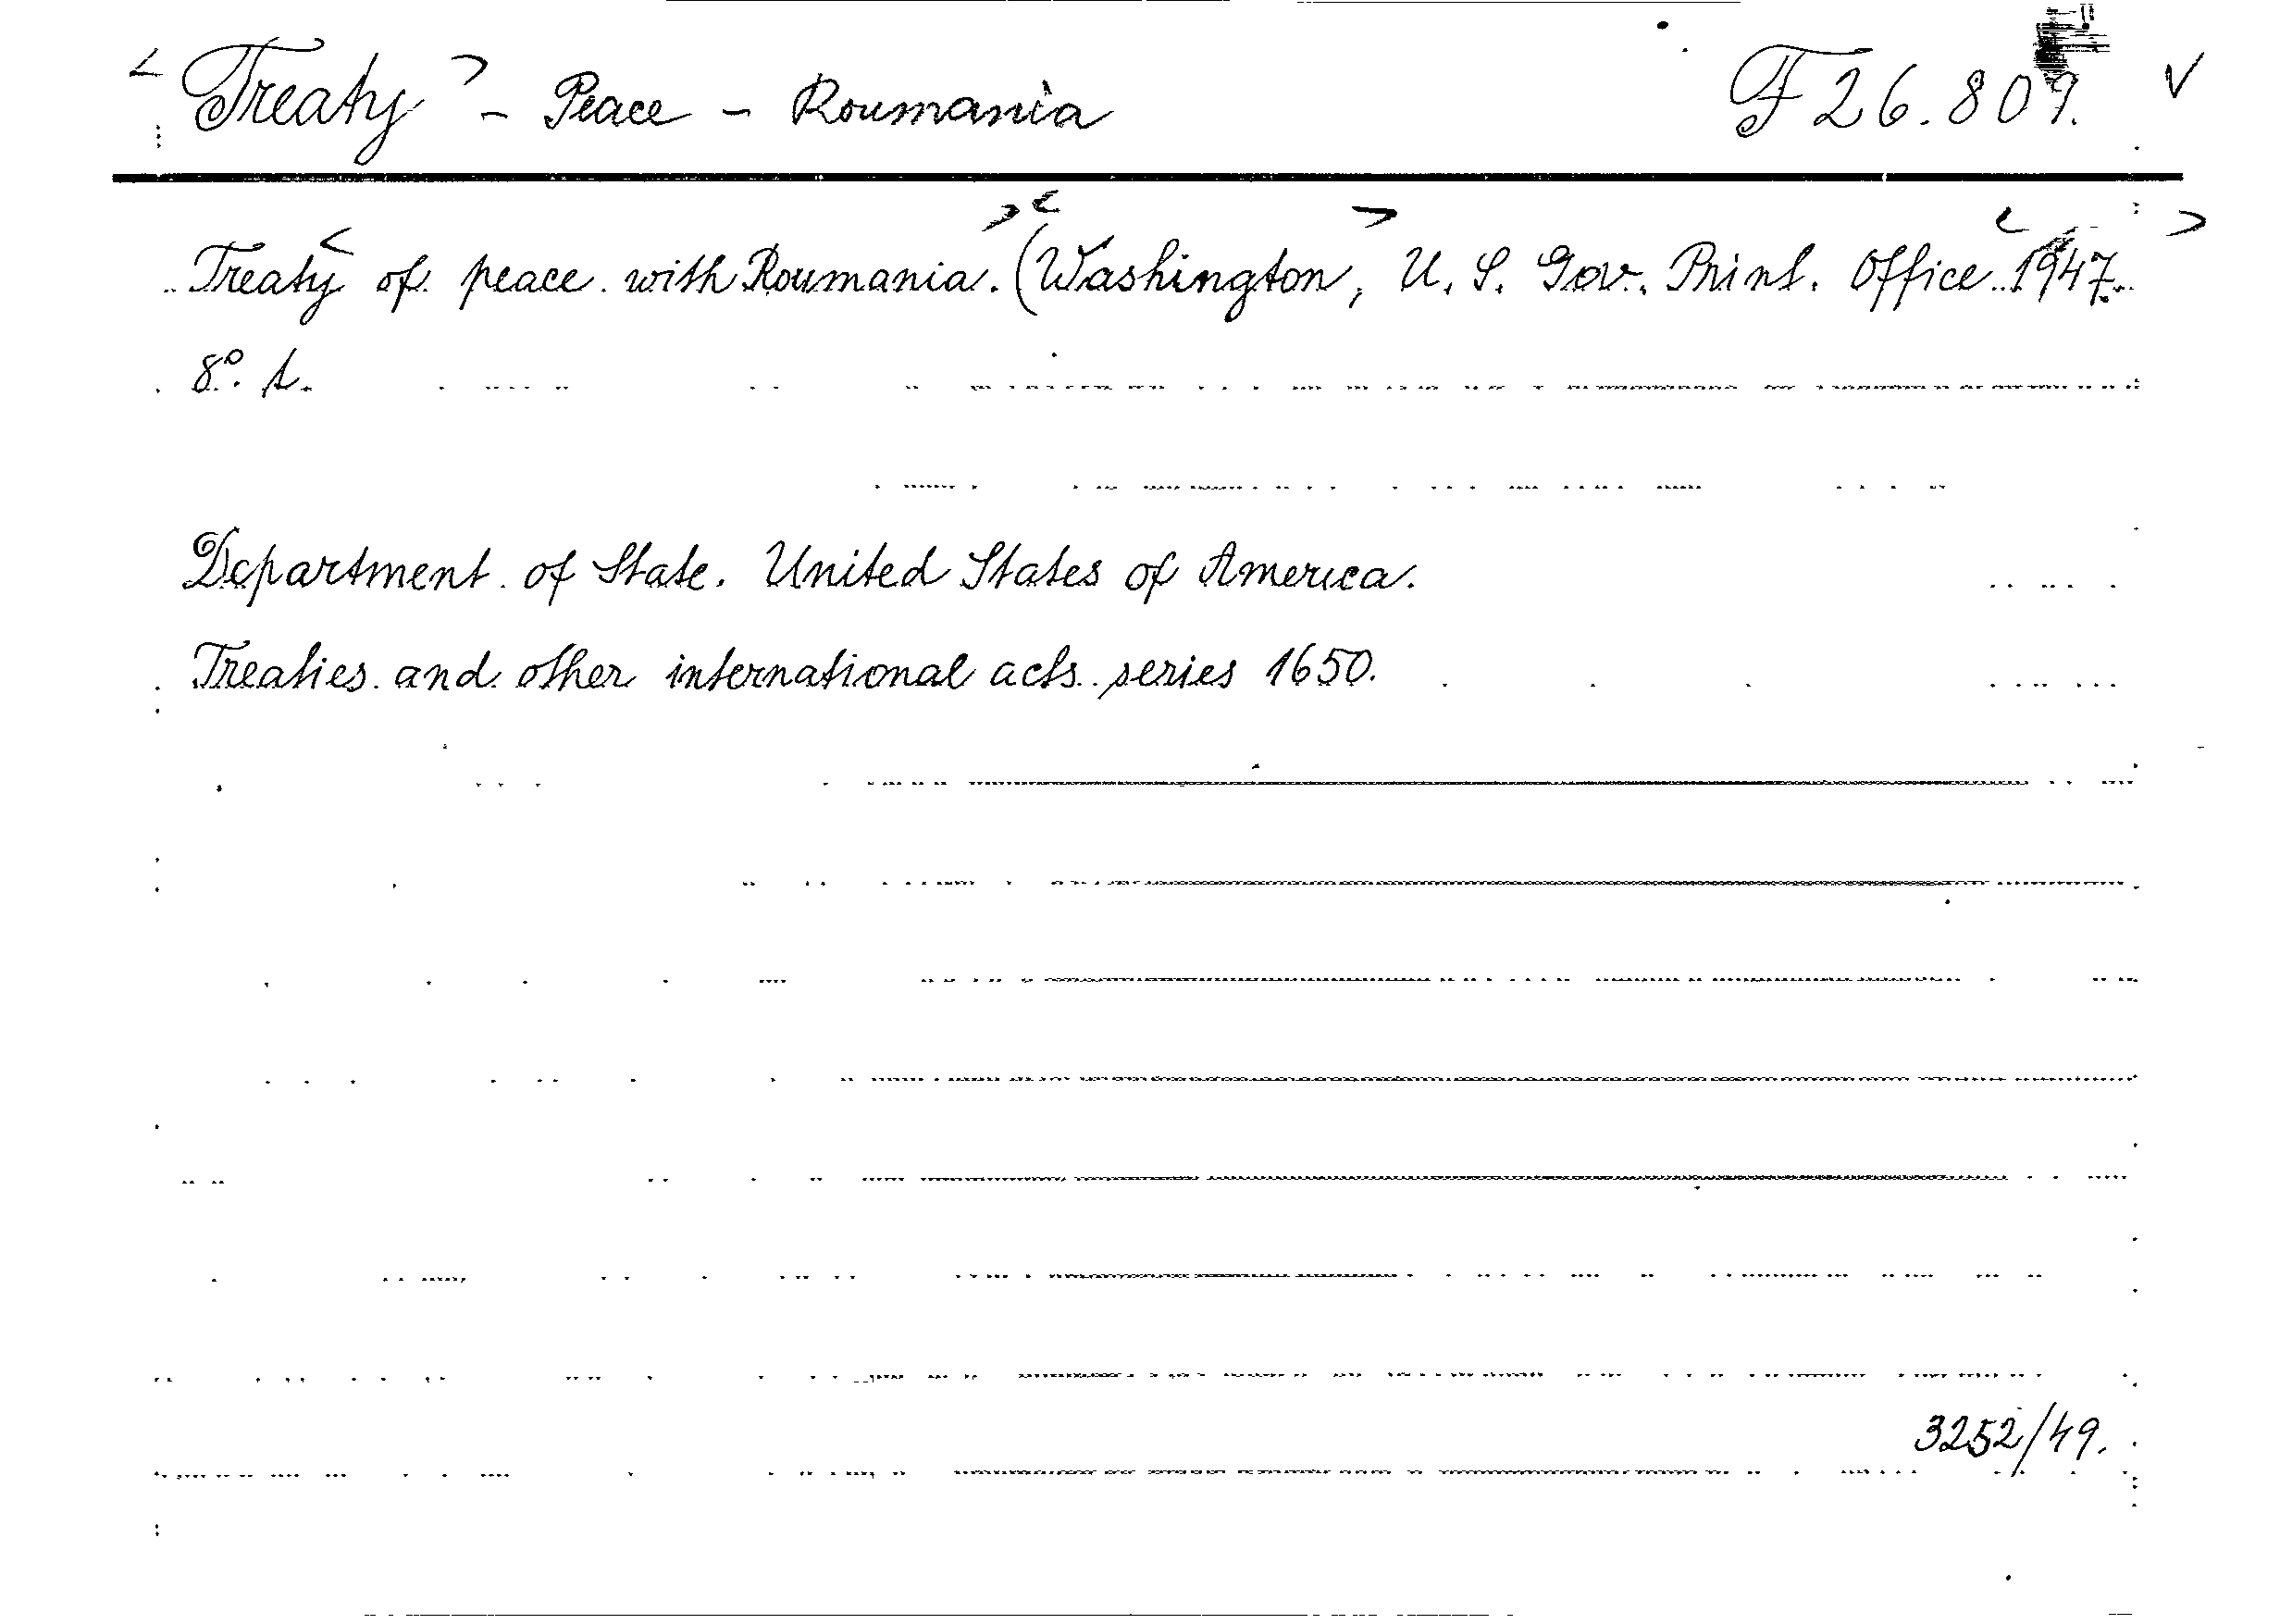 < Treaty > - Peace - Roumania F 26.809. V
Treaty < of peace with Roumania. > < (Washington, > U. S. Gov. Print. Office < 1947. >
8°. t.
Department of State. United States of America.
Treaties and other international acts series 1650.
3252/49.